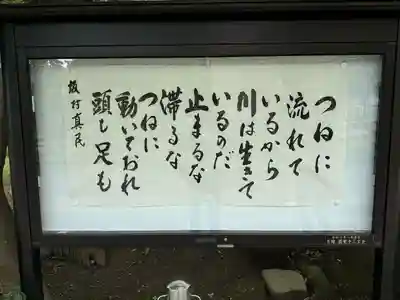 つねに
流れて
いるから
川は生きて
いるのだ
止まるな
滞るな
つねに
動いておれ
頭も足も
坂村真民